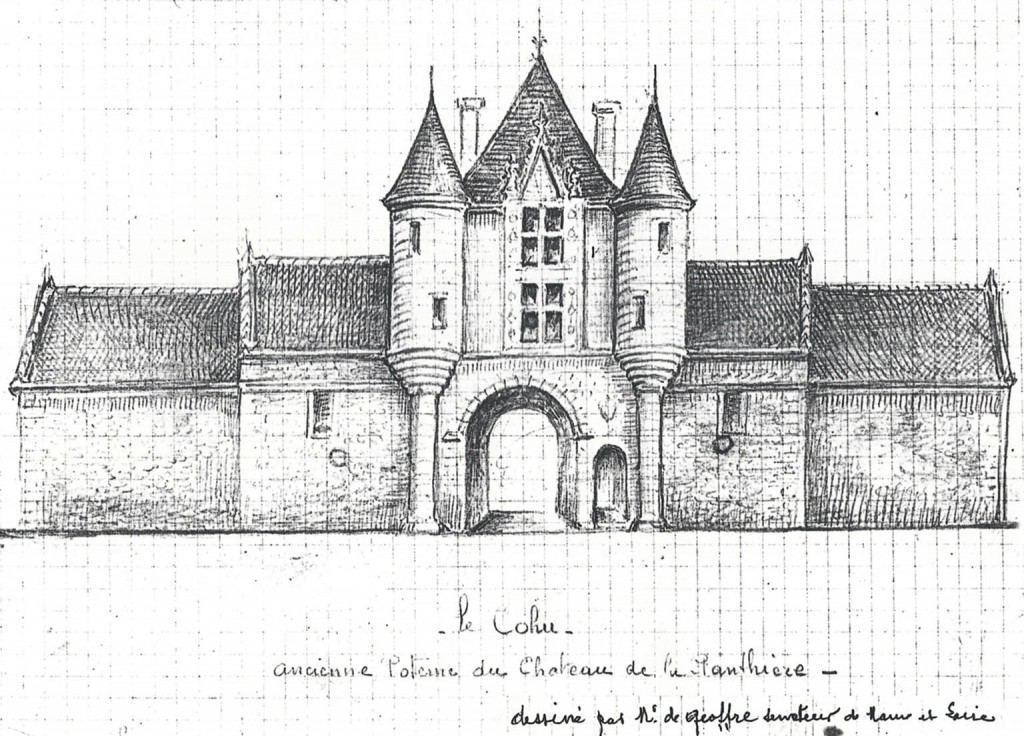 - le Cohu -
ancienne Poterne du Chateau de la Planthière -
dessiné par Mr. de Geoffre senateur de Maine et Loire